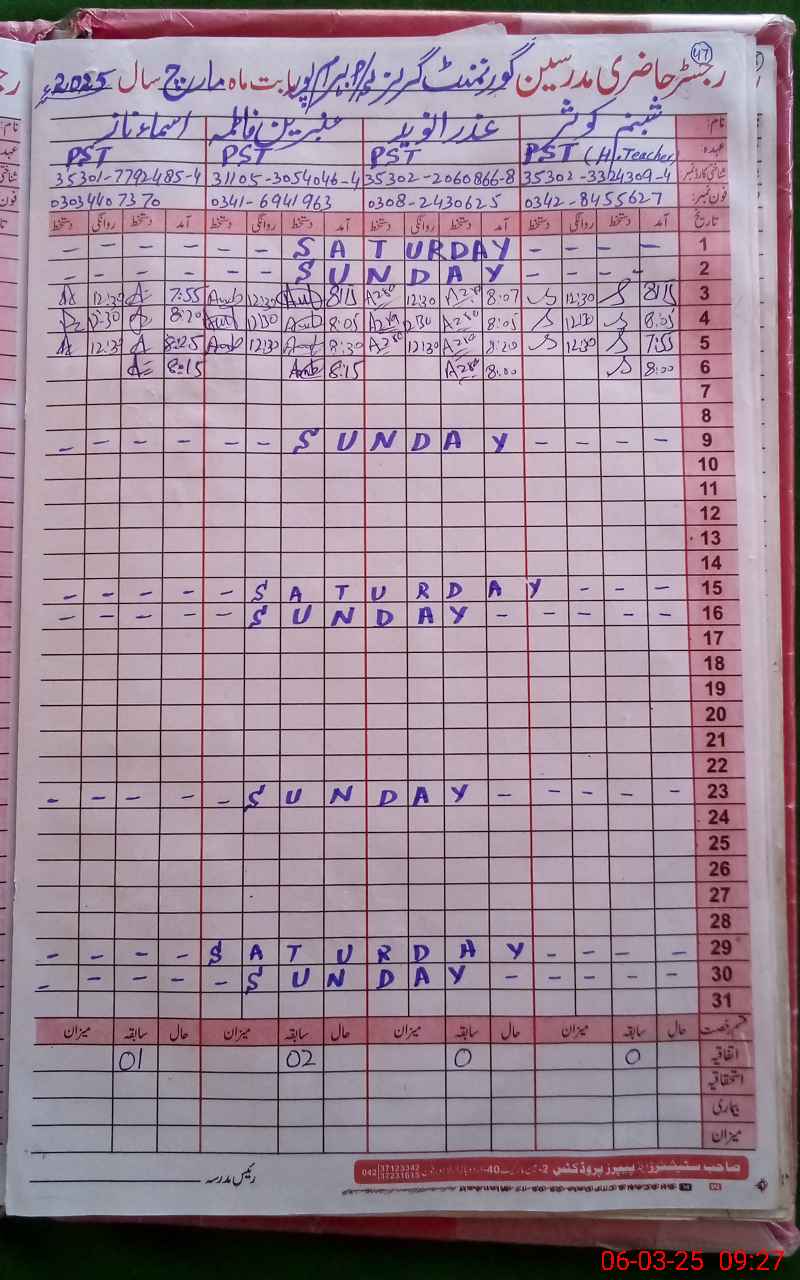 47
رجسٹر حاضری مدرسین گورنمنٹ گرلز بابت ماہ مارچ سال 2025ء
نام: شبنم کوثر عذرا نوید عنبرین فاطمہ اسماء ناز
عہدہ: PST (H.Teacher) PST PST PST
شناختی کارڈ نمبر 35302-3324309-4 35302-2060866-8 31105-3054046-4 35301-7792485-4
فون نمبر: 0342-8455627 0308-2430625 0341-6941963 03034407370
تاریخ آمد دستخط روانگی دستخط آمد دستخط روانگی دستخط آمد دستخط روانگی دستخط آمد دستخط روانگی دستخط
1 - - - - SATURDAY - - - - - -
2 - - - - SUNDAY - - - - - -
3 8:15 12:30 8:07 12:30 8:15 12:30 7:55 12:30
4 8:05 12:30 8:05 12:30 8:05 12:30 8:20 12:30
5 7:55 12:30 8:20 12:30 8:30 12:30 8:25 12:30
6 8:00 8:00 8:15 8:15
7
8
9 - - - - SUNDAY - - - - - -
10
11
12
13
14
15 - - - SATURDAY - - - - -
16 - - - - - SUNDAY - - - - -
17
18
19
20
21
22
23 - - - - - SUNDAY - - - - -
24
25
26
27
28
29 - - - - SATURDAY - - - -
30 - - - - - SUNDAY - - - - -
31
قسم رخصت حال سابقہ میزان حال سابقہ میزان حال سابقہ میزان حال سابقہ میزان
اتفاقیہ 0 0 02 01
استحقاقیہ
بیماری
میزان
صاحب سٹیشنرز اینڈ پیپرز پروڈکٹس 042 37123342 37231615
رئیس مدرسہ
06-03-25 09:27